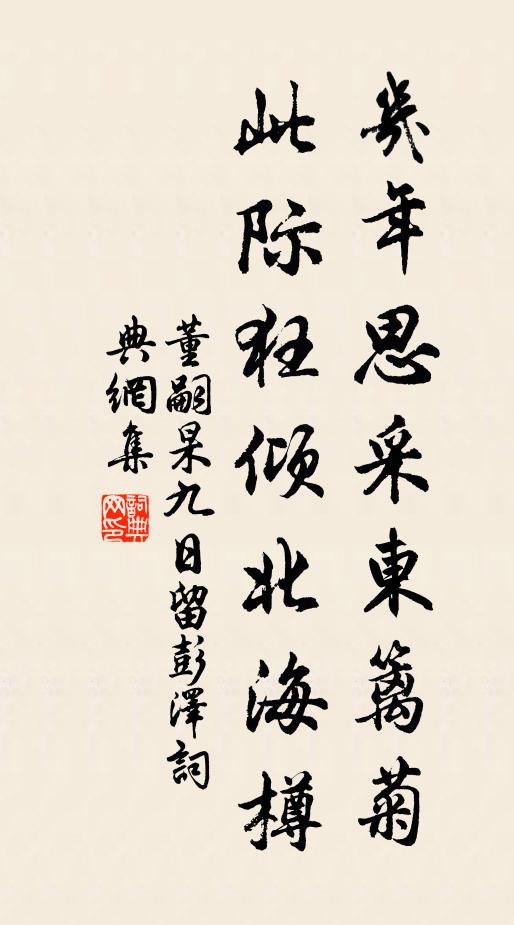 幾年思采東籬菊
此际狂倾北海樽
董嗣杲九日留彭澤詞
典網集
詞典网印